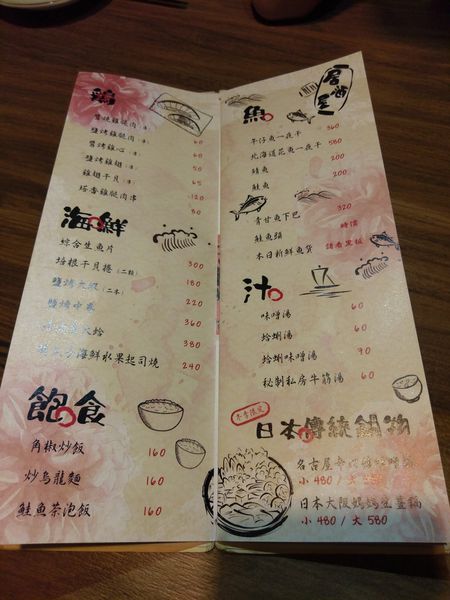 雞
醬烤雞腿肉(串) 60
鹽烤雞腿肉(串) 60
醬烤雞心(串) 50
鹽烤雞翅(串) 65
雞翅干貝(串) 120
塔香雞腿肉串 80
海鮮
綜合生魚片 300
培根干貝捲(二粒) 180
鹽烤大蝦(二本) 220
鹽烤中卷 360
380
海鮮水果起司燒 240
飽食
角椒炒飯 160
炒烏龍麵 160
鮭魚茶泡飯 160
居酒屋
魚
午仔魚一夜干 360
北海道花魚一夜干 580
鯖魚 200
鮭魚
青甘魚下巴 320
鮭魚頭 時價
本日新鮮魚貨 請看黑板
汁
味噌湯 60
蛤蜊湯 60
蛤蜊味噌湯 90
秘製私房牛筋湯 60
冬季限定
日本傳統鍋物
名古屋
小 480 / 大 580
日本大阪媽媽壽喜鍋
小 480 / 大 580